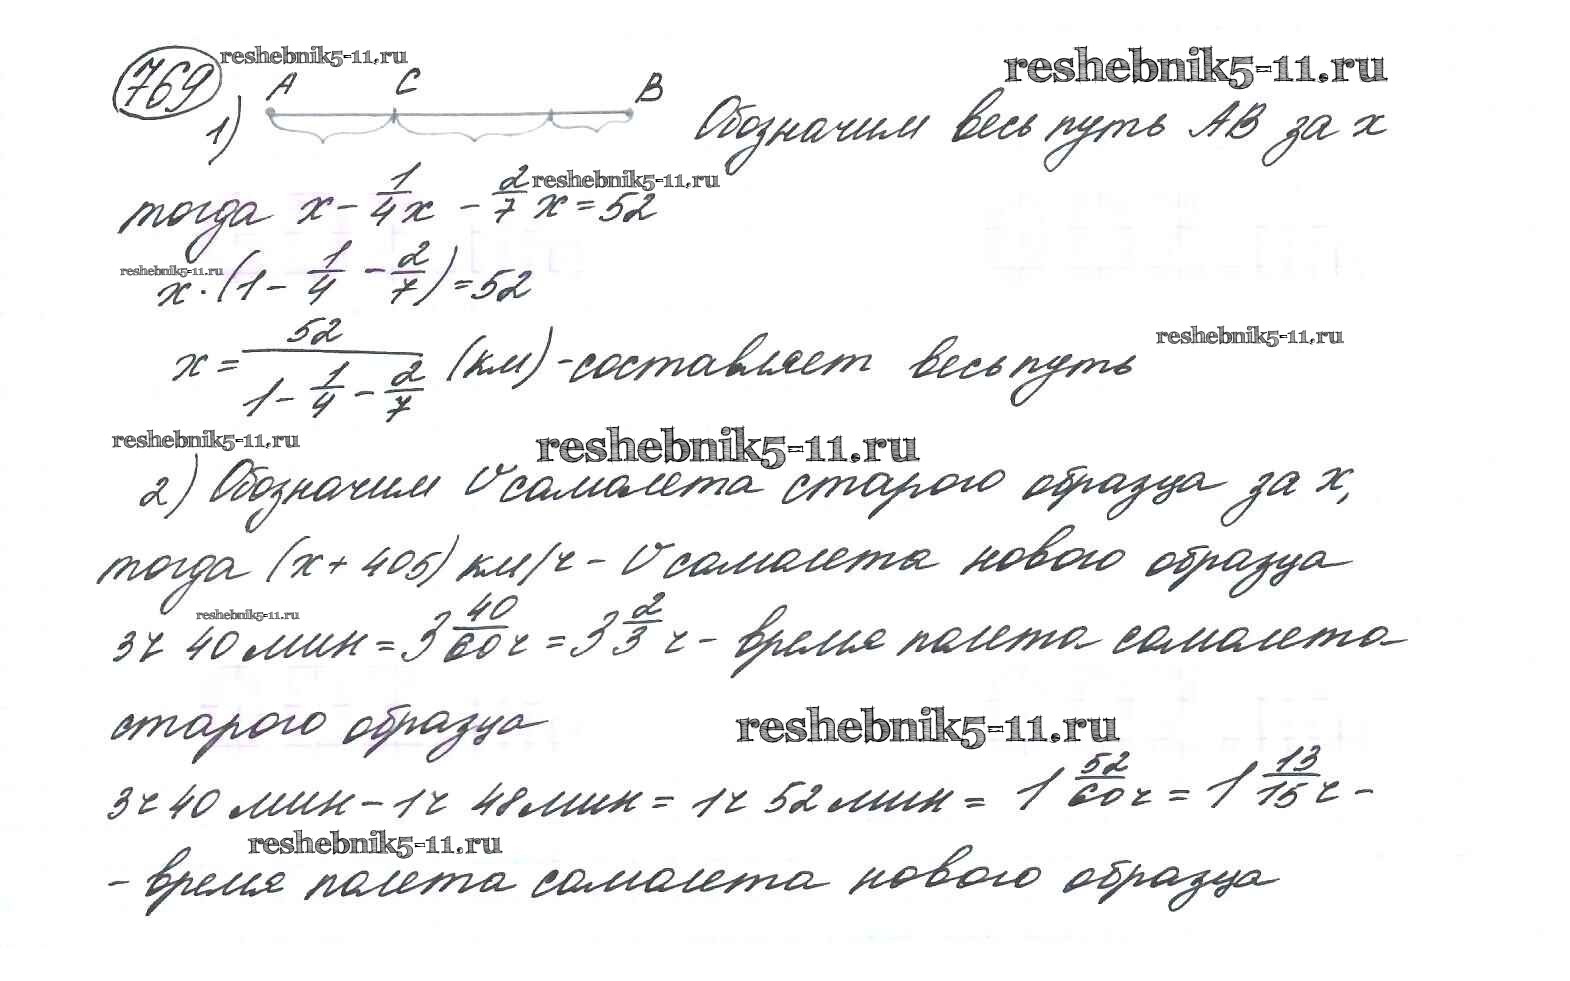 769 reshebnik5-11.ru
reshebnik5-11.ru
1) A C B Обозначим весь путь АВ за х
тогда х - 1/4 х - 2/7 х = 52 reshebnik5-11.ru
reshebnik5-11.ru
х · (1 - 1/4 - 2/7) = 52
х = 52/(1 - 1/4 - 2/7) (км) - составляет весь путь
reshebnik5-11.ru
reshebnik5-11.ru
reshebnik5-11.ru
2) Обозначим V самолета старого образца за х,
тогда (х + 405) км/ч - V самолета нового образца
reshebnik5-11.ru
3ч 40 мин = 3 40/60 ч = 3 2/3 ч - время полета самолета
старого образца
reshebnik5-11.ru
3ч 40 мин - 1ч 48 мин = 1ч 52 мин = 1 52/60 ч = 1 13/15 ч -
reshebnik5-11.ru
- время полета самолета нового образца